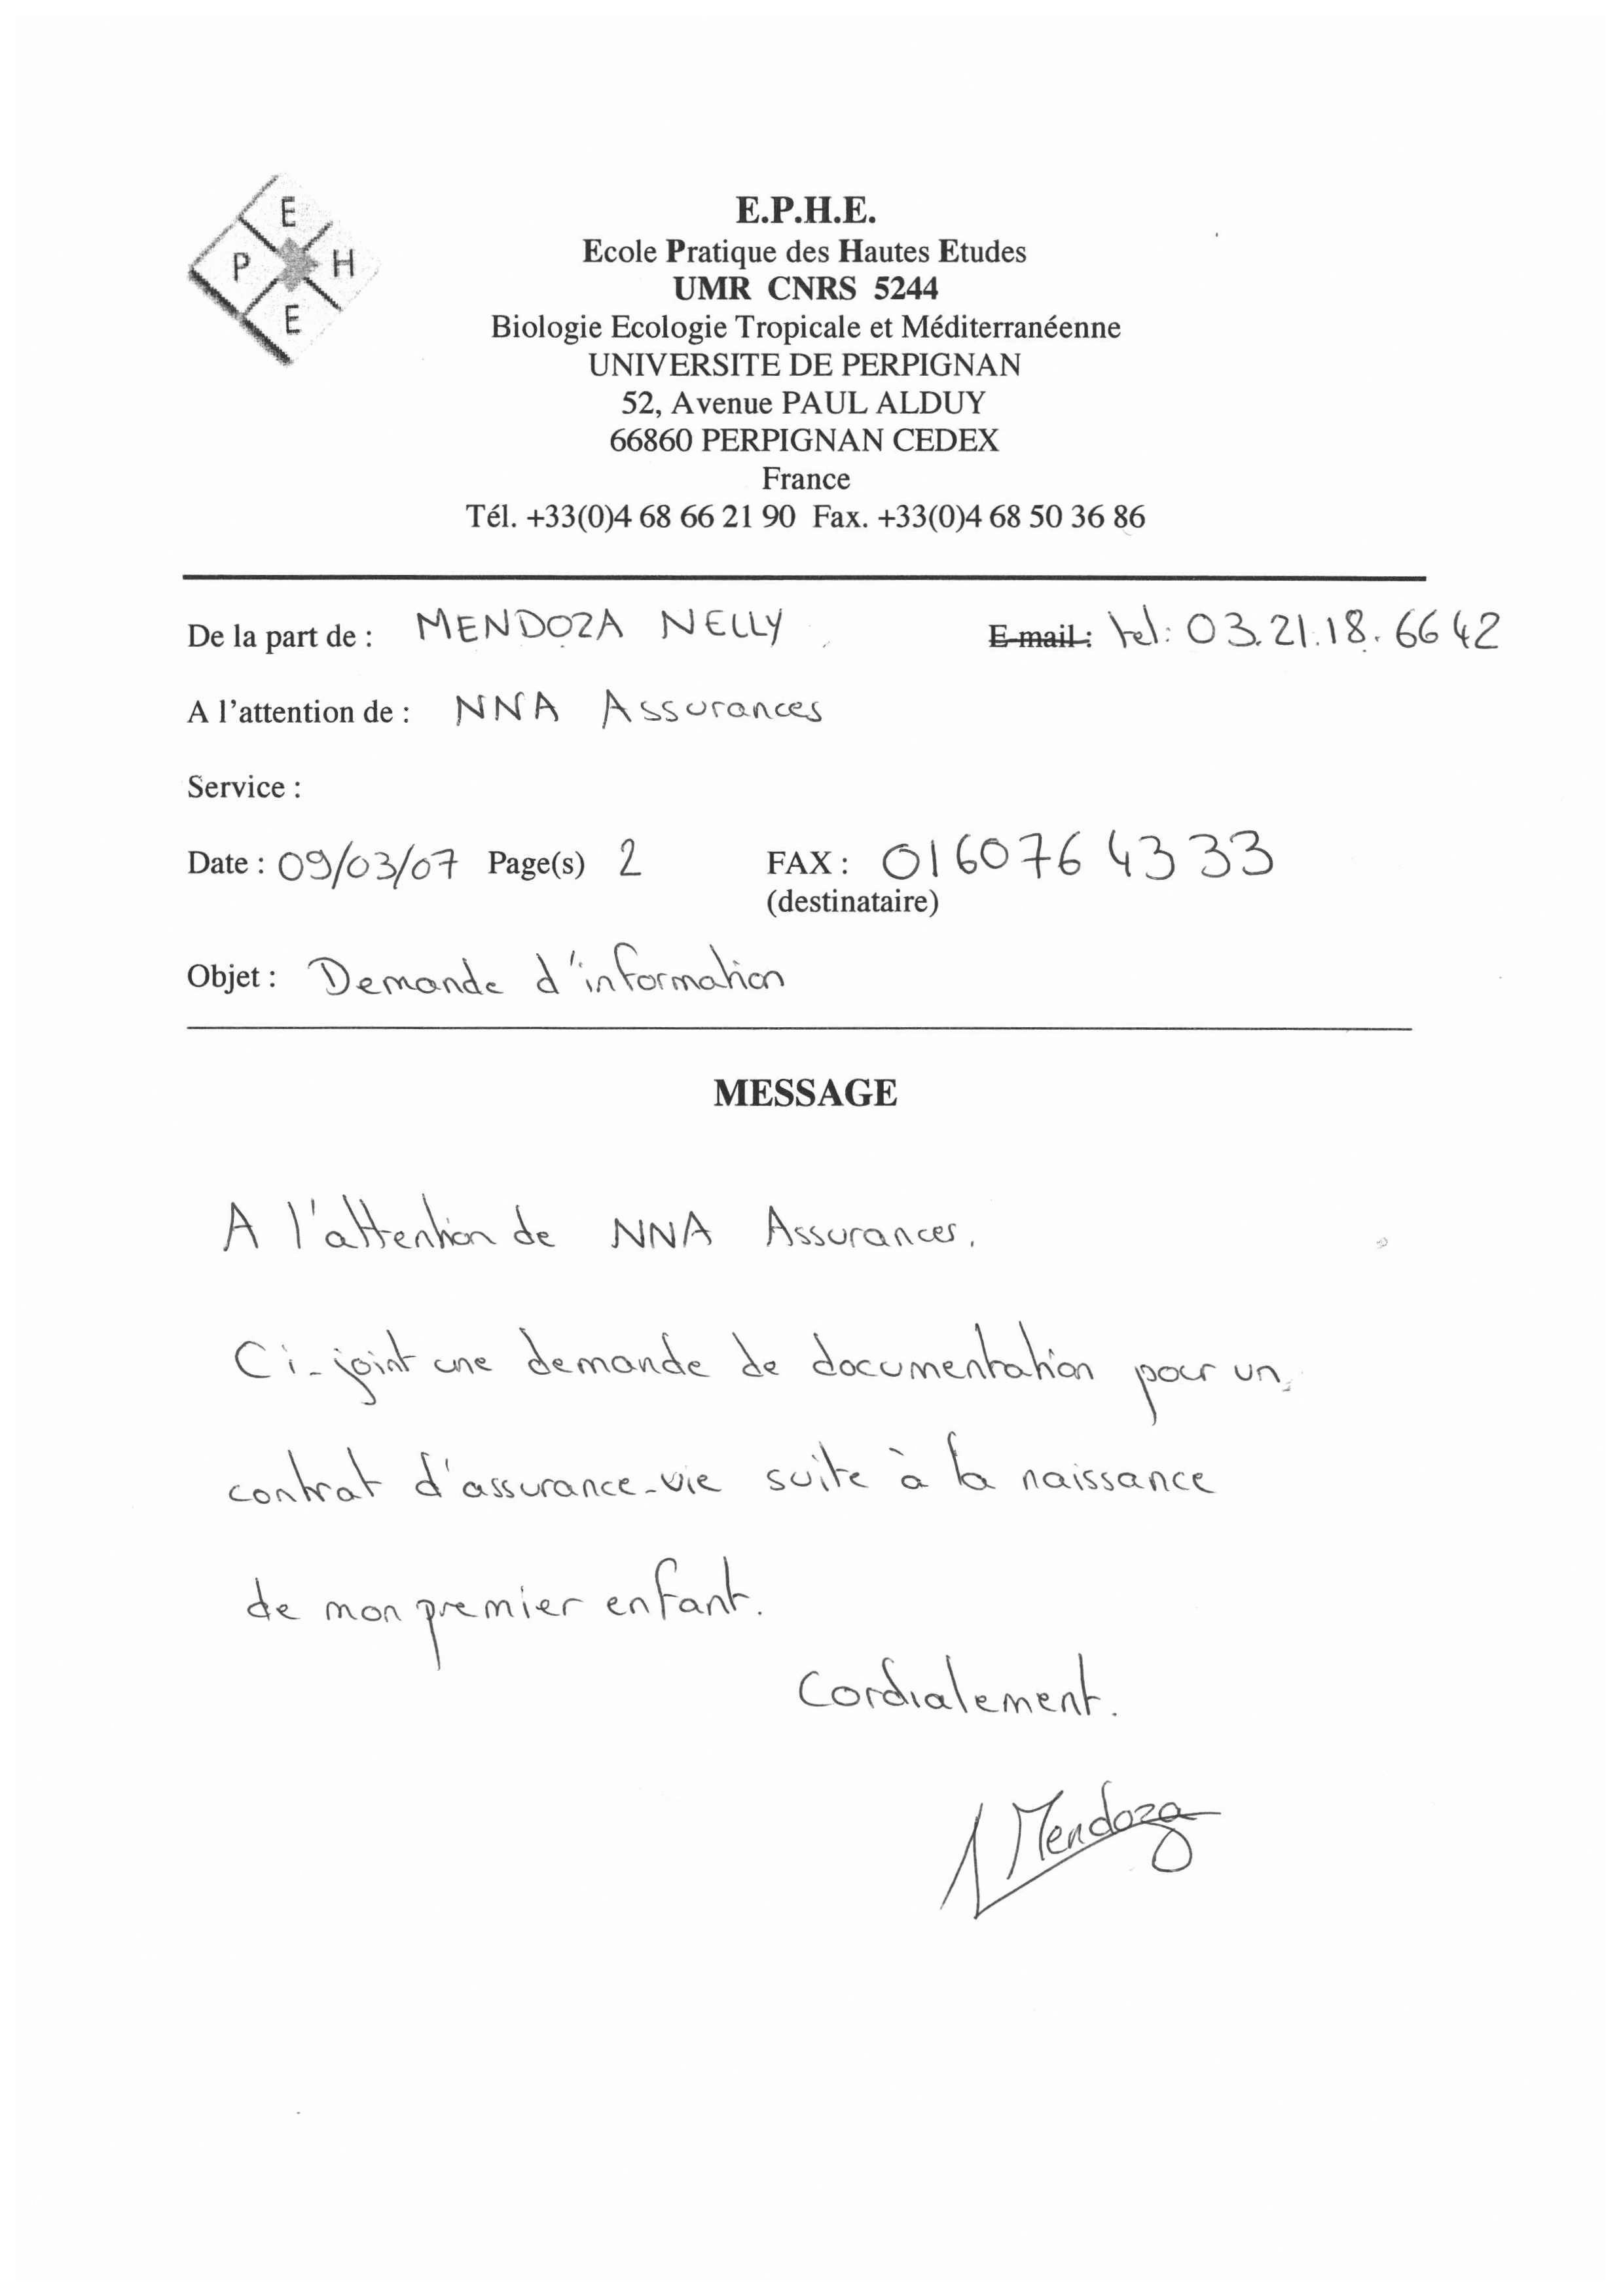 E
P H
E
E.P.H.E.
Ecole Pratique des Hautes Etudes
UMR CNRS 5244
Biologie Ecologie Tropicale et Méditerranéenne
UNIVERSITE DE PERPIGNAN
52, Avenue PAUL ALDUY
66860 PERPIGNAN CEDEX
France
Tél. +33(0)4 68 66 21 90 Fax. +33(0)4 68 50 36 86
De la part de : MENDOZA NELLY E-mail : tel: 03.21.18.6642
A l'attention de : NNA Assurances
Service :
Date : 09/03/07 Page(s) 2 FAX : 0160764333
(destinataire)
Objet : Demande d'information
MESSAGE
A l'attention de NNA Assurances.
Ci-joint une demande de documentation pour un
contrat d'assurance-vie suite à la naissance
de mon premier enfant.
Cordialement.
Mendoza